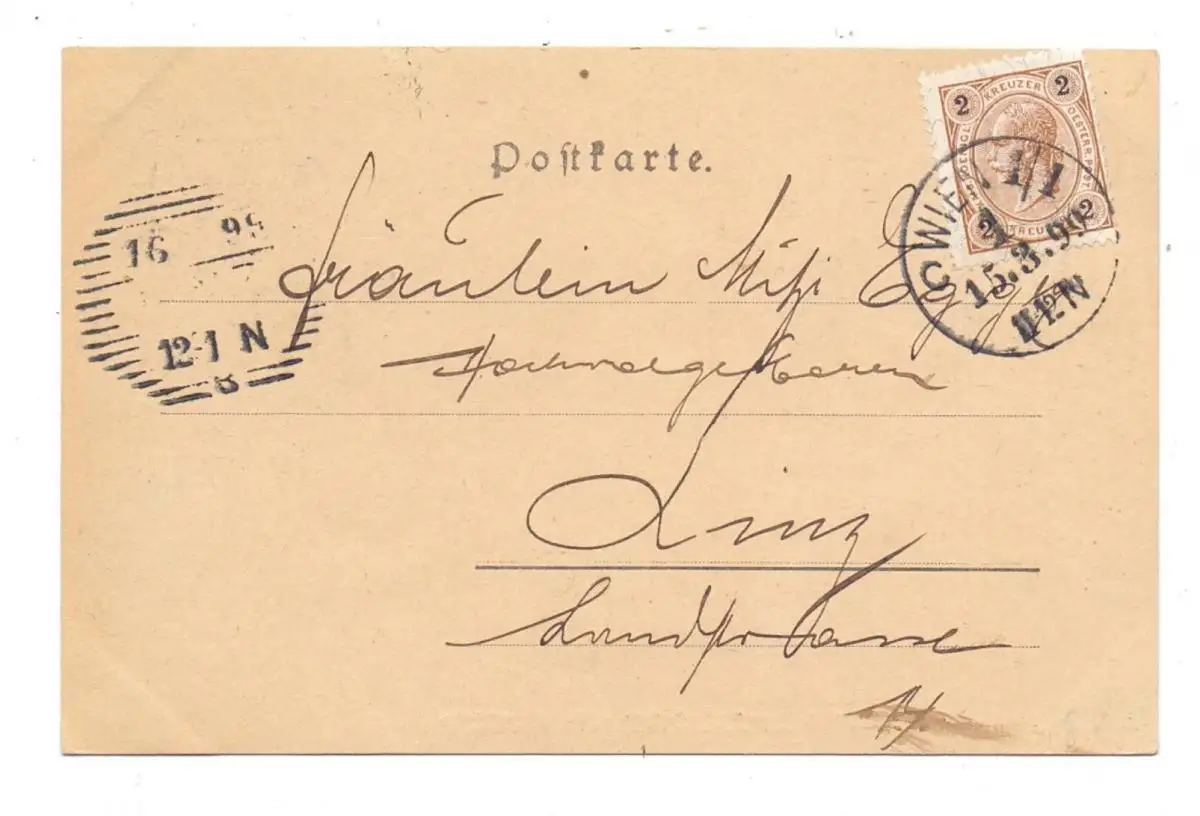 Postkarte.
2 KREUZER 2
OESTERR. POST
2 KREUZER 2
WIEN 1/1
15.3.99
11-12.N
16 99
12-1 N
8
Fräulein Mizi
Hochwolgeboren
Linz
Landstrasse
14